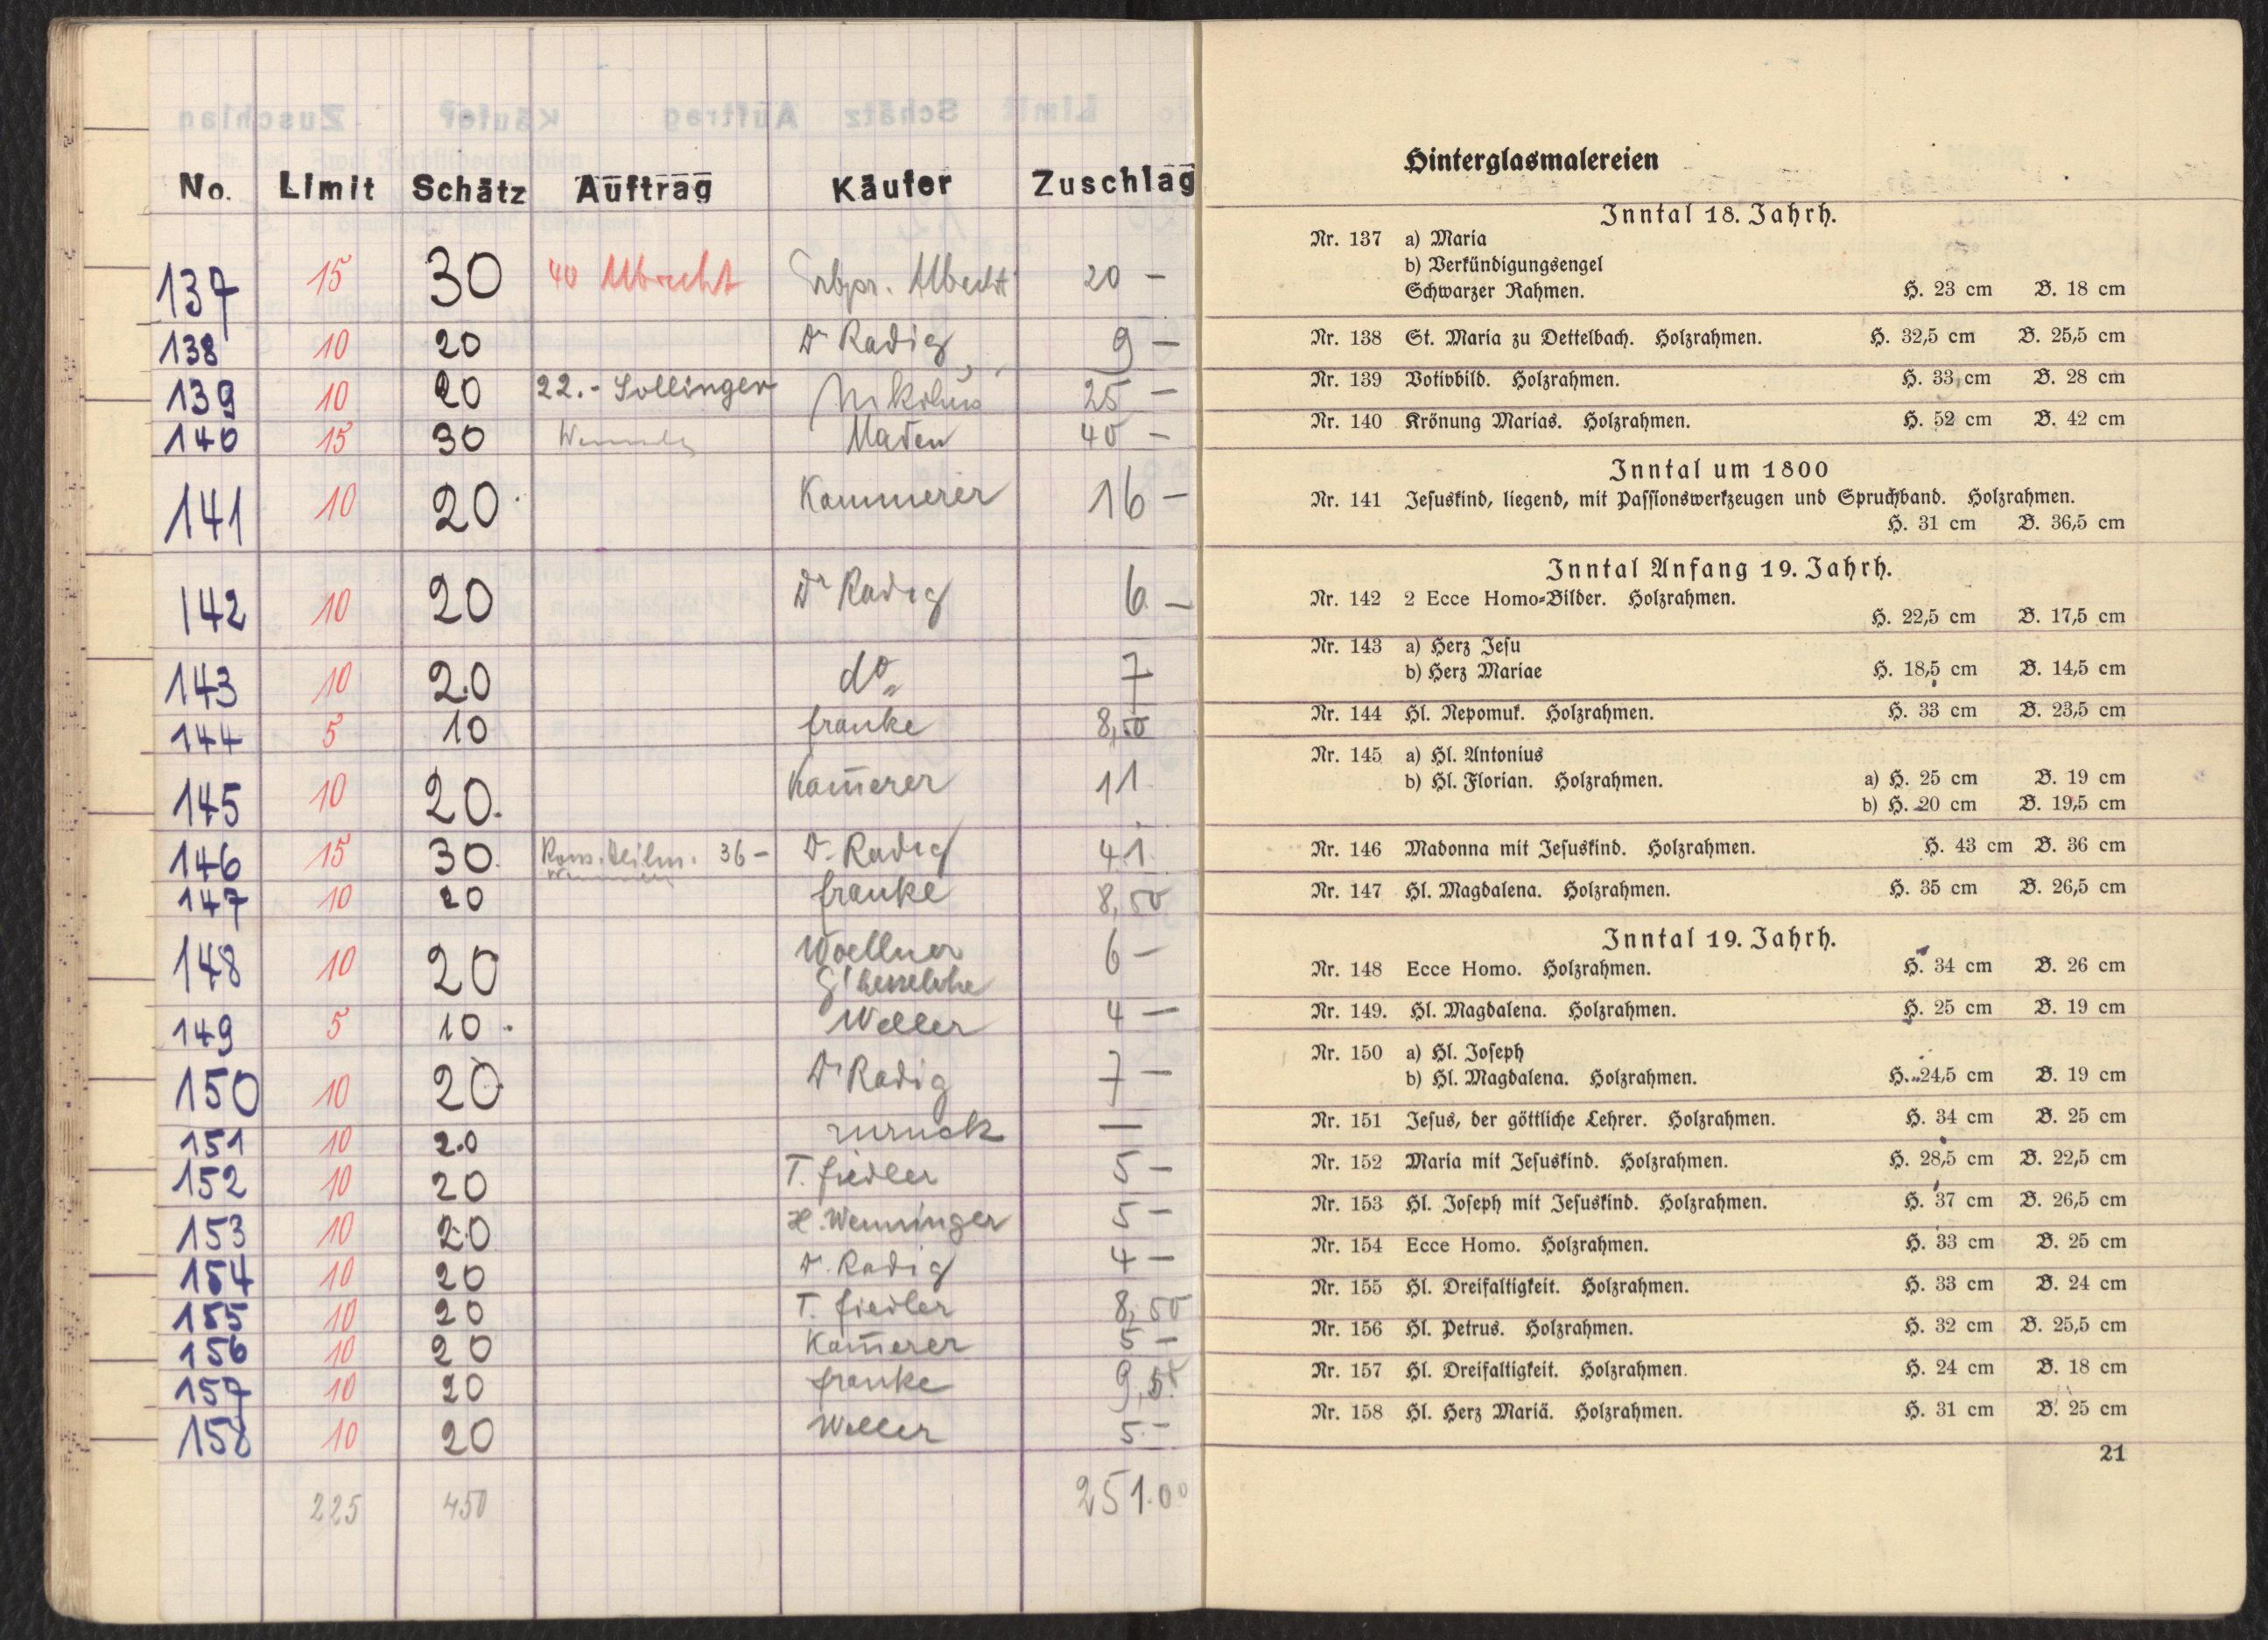 No. Limit Schätz Auftrag Käufer Zuschlag
137 15 30 40 Albrecht Erbpr. Albrecht 20 —
138 10 20 Dr Radig 9 —
139 10 20 22.- Sollinger 25 —
140 15 30 Maden 40 —
141 10 20 Kammerer 16 —
142 10 20 Dr Radig 6 —
143 10 20 do 7
144 5 10 franke 8,50
145 10 20 Kam̄erer 11
146 15 30 36 — Dr. Radig 41
147 10 20 franke 8,50
148 10 20 Woellner 6 —
G'hesselohe
149 5 10 Weller 4 —
150 10 20 Dr Radig 7 —
151 10 20 zurück —
152 10 20 T. fiedler 5 —
153 10 20 H. Wenninger 5 —
154 10 20 Dr. Radig 4 —
155 10 20 T. fiedler 8,50
156 10 20 Kam̄erer 5 —
157 10 20 franke 9,50
158 10 20 Weller 5.-
225 450 251.00
Hinterglasmalereien
Inntal 18. Jahrh.
Nr. 137 a) Maria
b) Verkündigungsengel
Schwarzer Rahmen. H. 23 cm B. 18 cm
Nr. 138 St. Maria zu Dettelbach. Holzrahmen. H. 32,5 cm B. 25,5 cm
Nr. 139 Votivbild. Holzrahmen. H. 33 cm B. 28 cm
Nr. 140 Krönung Marias. Holzrahmen. H. 52 cm B. 42 cm
Inntal um 1800
Nr. 141 Jesuskind, liegend, mit Passionswerkzeugen und Spruchband. Holzrahmen.
H. 31 cm B. 36,5 cm
Inntal Anfang 19. Jahrh.
Nr. 142 2 Ecce Homo-Bilder. Holzrahmen.
H. 22,5 cm B. 17,5 cm
Nr. 143 a) Herz Jesu
b) Herz Mariae H. 18,5 cm B. 14,5 cm
Nr. 144 Hl. Nepomuk. Holzrahmen. H. 33 cm B. 23,5 cm
Nr. 145 a) Hl. Antonius
b) Hl. Florian. Holzrahmen. a) H. 25 cm B. 19 cm
b) H. 20 cm B. 19,5 cm
Nr. 146 Madonna mit Jesuskind. Holzrahmen. H. 43 cm B. 36 cm
Nr. 147 Hl. Magdalena. Holzrahmen. H. 35 cm B. 26,5 cm
Inntal 19. Jahrh.
Nr. 148 Ecce Homo. Holzrahmen. H. 34 cm B. 26 cm
Nr. 149. Hl. Magdalena. Holzrahmen. H. 25 cm B. 19 cm
Nr. 150 a) Hl. Joseph
b) Hl. Magdalena. Holzrahmen. H. 24,5 cm B. 19 cm
Nr. 151 Jesus, der göttliche Lehrer. Holzrahmen. H. 34 cm B. 25 cm
Nr. 152 Maria mit Jesuskind. Holzrahmen. H. 28,5 cm B. 22,5 cm
Nr. 153 Hl. Joseph mit Jesuskind. Holzrahmen. H. 37 cm B. 26,5 cm
Nr. 154 Ecce Homo. Holzrahmen. H. 33 cm B. 25 cm
Nr. 155 Hl. Dreifaltigkeit. Holzrahmen. H. 33 cm B. 24 cm
Nr. 156 Hl. Petrus. Holzrahmen. H. 32 cm B. 25,5 cm
Nr. 157 Hl. Dreifaltigkeit. Holzrahmen. H. 24 cm B. 18 cm
Nr. 158 Hl. Herz Mariä. Holzrahmen. H. 31 cm B. 25 cm
21